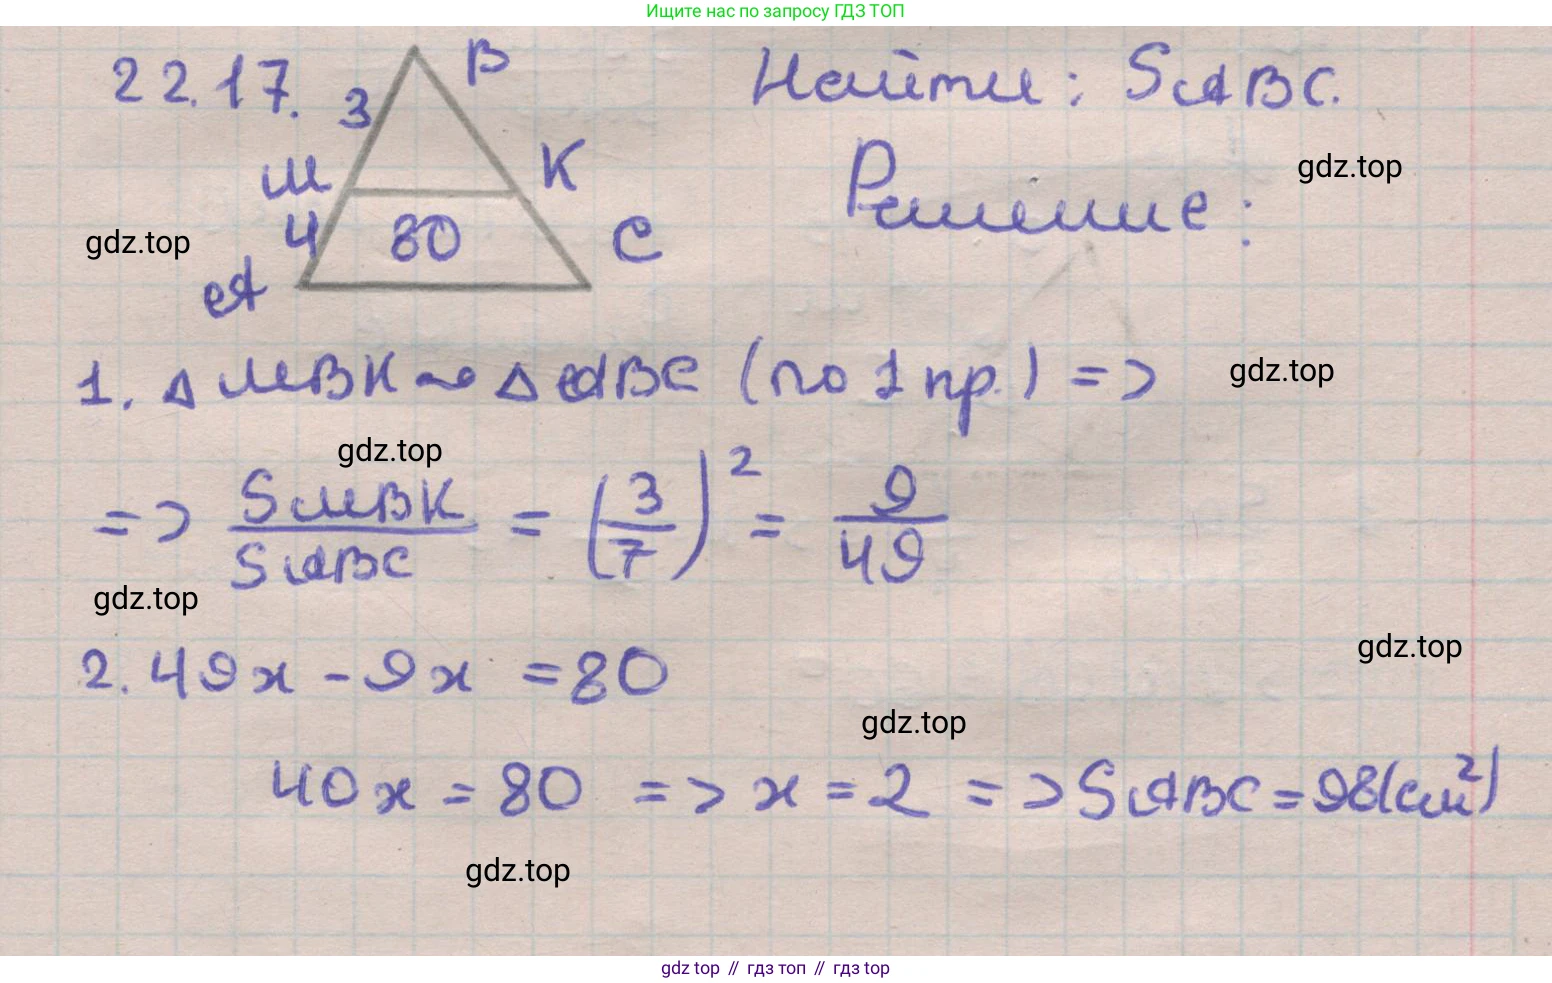 Ищите нас по запросу ГДЗ ТОП
22.17.
3
В
М
К
4
80
С
А
Найти: SABC.
Решение:
gdz.top
gdz.top
1. △ МВК ~ △ АВС (по 1 пр.) =>
gdz.top
gdz.top
=> SМВК / SАВС = (3/7)² = 9/49
gdz.top
gdz.top
2. 49x - 9x = 80
gdz.top
40x = 80 => x = 2 => SАВС = 98(см²)
gdz.top
gdz top // гдз топ // гдз top